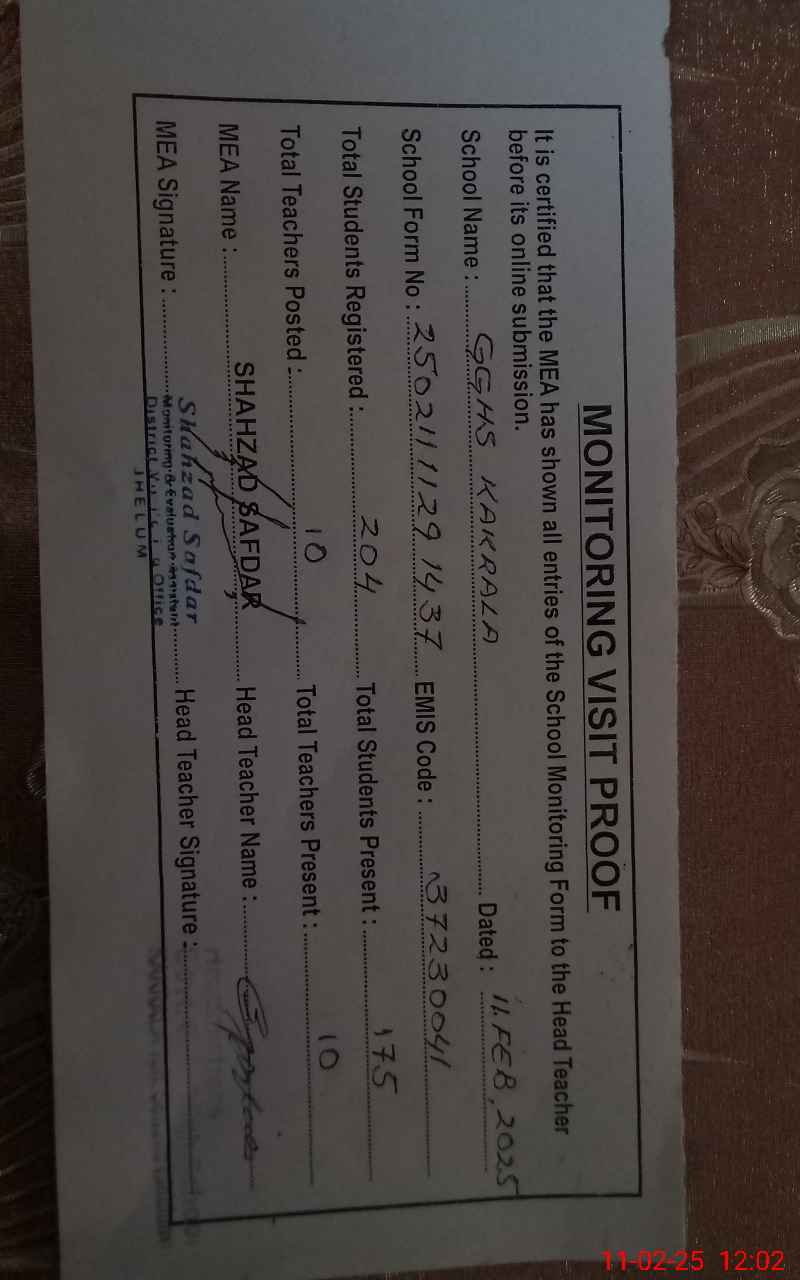 MONITORING VISIT PROOF
It is certified that the MEA has shown all entries of the School Monitoring Form to the Head Teacher
before its online submission.
School Name : GGHS KAKRALA Dated : 11.FEB,2025
School Form No : 2502111129 1437 EMIS Code : 37230041
Total Students Registered : 204 Total Students Present : 175
Total Teachers Posted : 10 Total Teachers Present : 10
MEA Name : SHAHZAD SAFDAR Head Teacher Name :
MEA Signature : Shahzad Safdar Head Teacher Signature :
Monitoring & Evaluation Assistant
District Office
JHELUM
11-02-25 12:02